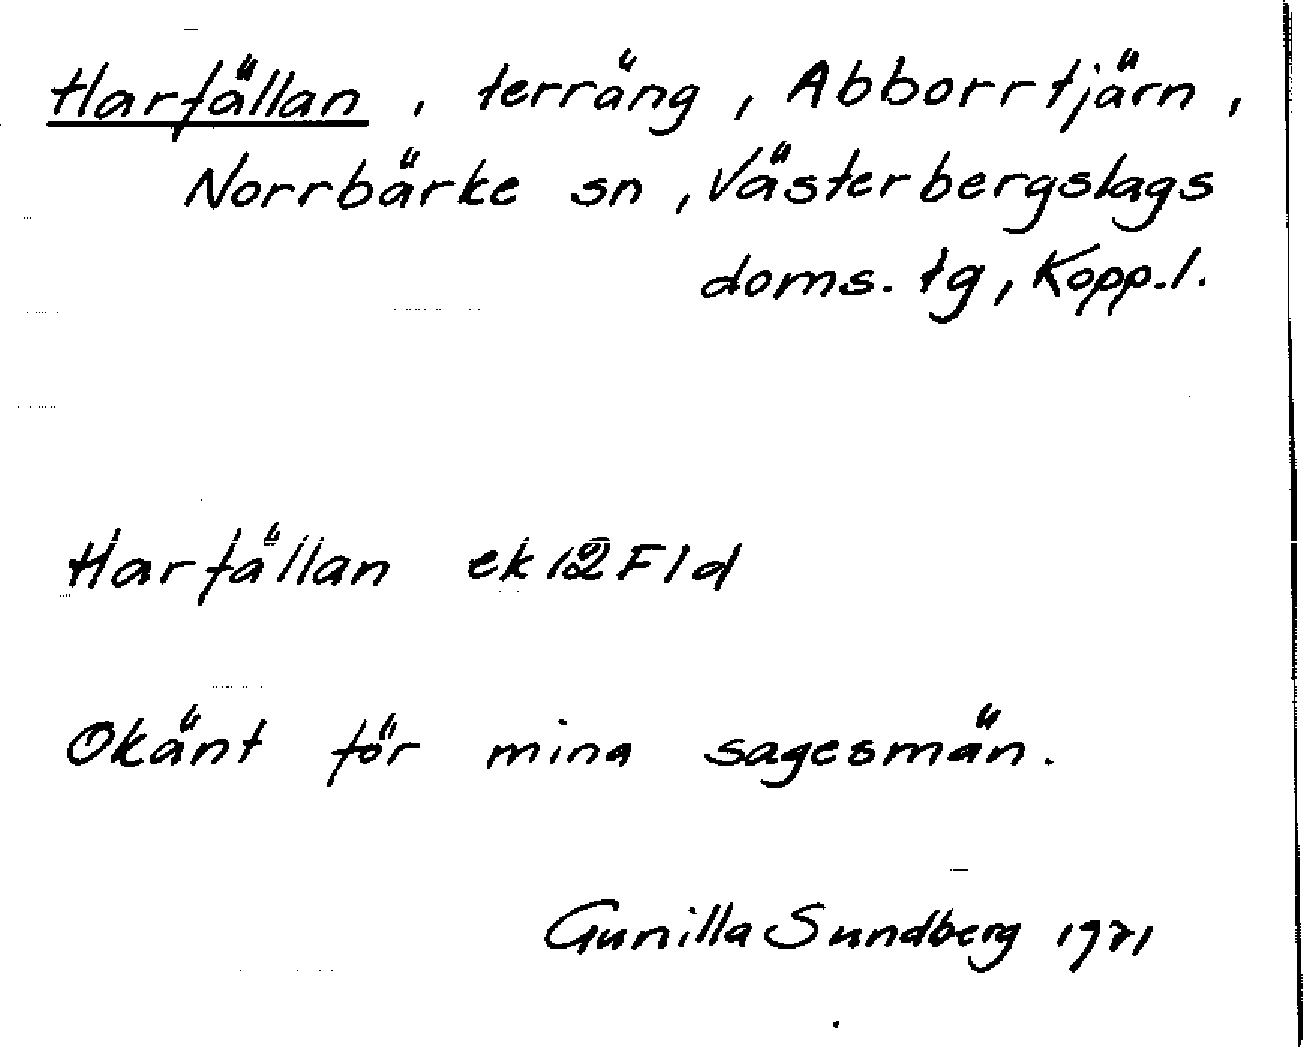 Harfällan, terräng, Abborrtjärn,
Norrbärke sn, Västerbergslags
doms. tg, Kopp.l.
Harfällan ek 12F1d
Okänt för mina sagesmän.
Gunilla Sundberg 1971